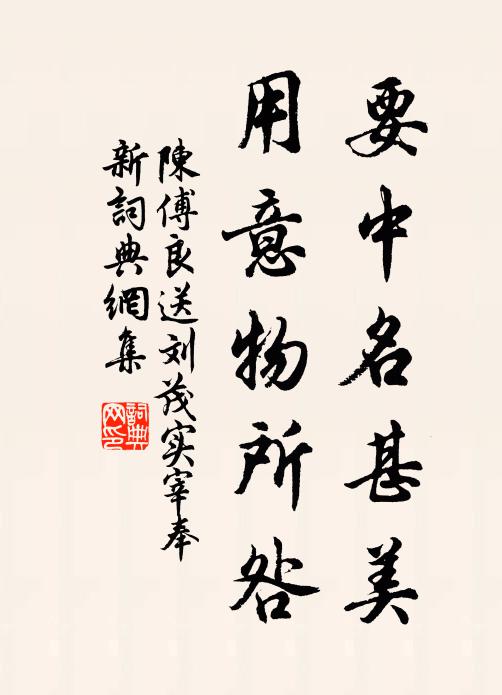 要中名甚美
用意物所咎
陳傅良送刘茂实宰奉
新詞典網集
詞典
网印